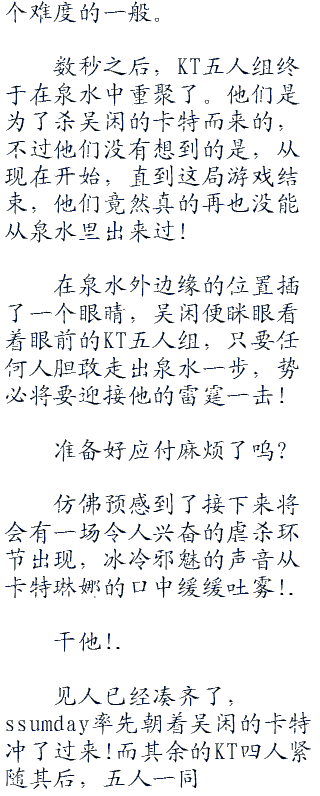 个难度的一般。
数秒之后，KT五人组终
于在泉水中重聚了。他们是
为了杀吴闲的卡特而来的，
不过他们没有想到的是，从
现在开始，直到这局游戏结
束，他们竟然真的再也没能
从泉水里出来过！
在泉水外边缘的位置插
了一个眼睛，吴闲便眯眼看
着眼前的KT五人组，只要任
何人胆敢走出泉水一步，势
必将要迎接他的雷霆一击！
准备好应付麻烦了呜？
仿佛预感到了接下来将
会有一场令人兴奋的虐杀环
节出现，冰冷邪魅的声音从
卡特琳娜的口中缓缓吐雾！.
干他！.
见人已经凑齐了，
ssumday率先朝着吴闲的卡特
冲了过来！而其余的KT四人紧
随其后，五人一同